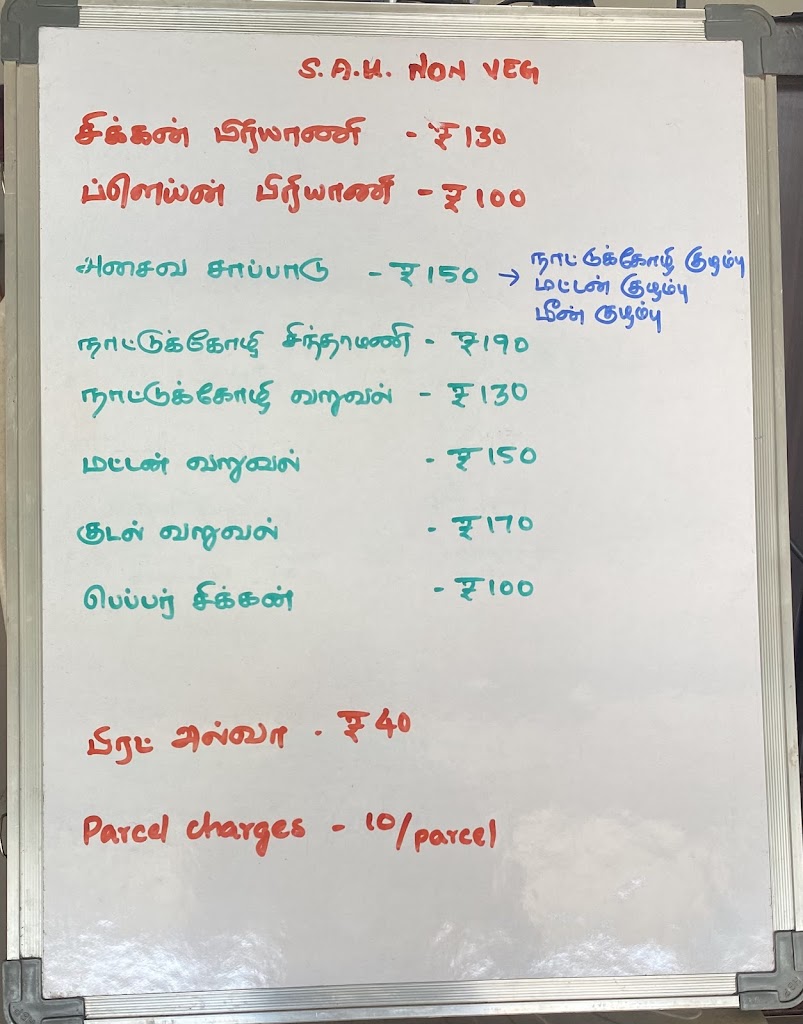 S.A.U. NON VEG
சிக்கன் பிரியாணி - ₹130
ப்ளெய்ன் பிரியாணி - ₹100
அசைவ சாப்பாடு - ₹150 → நாட்டுக்கோழி குழம்பு
மட்டன் குழம்பு
மீன் குழம்பு
நாட்டுக்கோழி சிந்தாமணி - ₹190
நாட்டுக்கோழி வறுவல் - ₹130
மட்டன் வறுவல் - ₹150
குடல் வறுவல் - ₹170
பெப்பர் சிக்கன் - ₹100
பிரட் அல்வா - ₹40
Parcel charges - 10/parcel